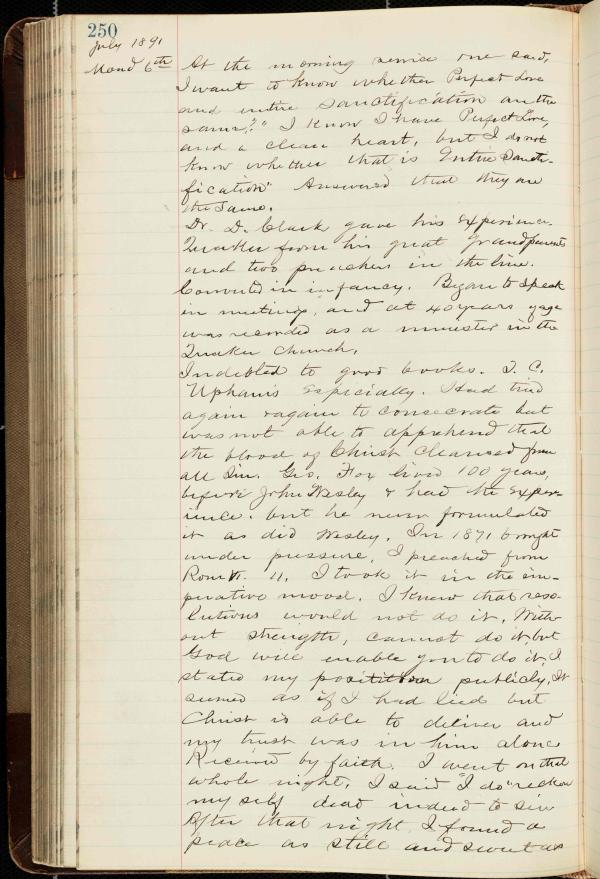 250
July 1891
Mond 6th
At the morning service one said,
I want to know whether Perfect Love
and entire sanctification are the
same?" I know I have Perfect Love,
and a clean heart, but I do not
know whether that is Entire Sancti-
fication" Answered that they are
the same.
Dr. D. Clark gave his experience.
Quaker from his great Grandparents
and two preachers in the line.
Converted in infancy. Began to speak
in meetings, and at 40 years of age
was recorded as a minister in the
Quaker church.
Indebted to good books. T. C.
Upham's especially. Had tried
again & again to consecrate but
was not able to apprehend that
the blood of Christ cleansed from
all sin. Geo. Fox lived 100 years,
before John Wesley & had the exper-
ience. but he never formulated
it as did Wesley. In 1871 brought
under pressure, I preached from
Rom VI. 11. I took it in the im-
perative mood. I knew that reso-
lutions would not do it. With-
out strength, cannot do it, but
God will enable you to do it, I
stated my position publicly, It
seemed as if I had lied but
Christ is able to deliver and
my trust was in him alone
Received by faith. I went on that
whole night, I said "I do" reckon
myself dead indeed to sin
After that night I found a
peace as still and sweet as